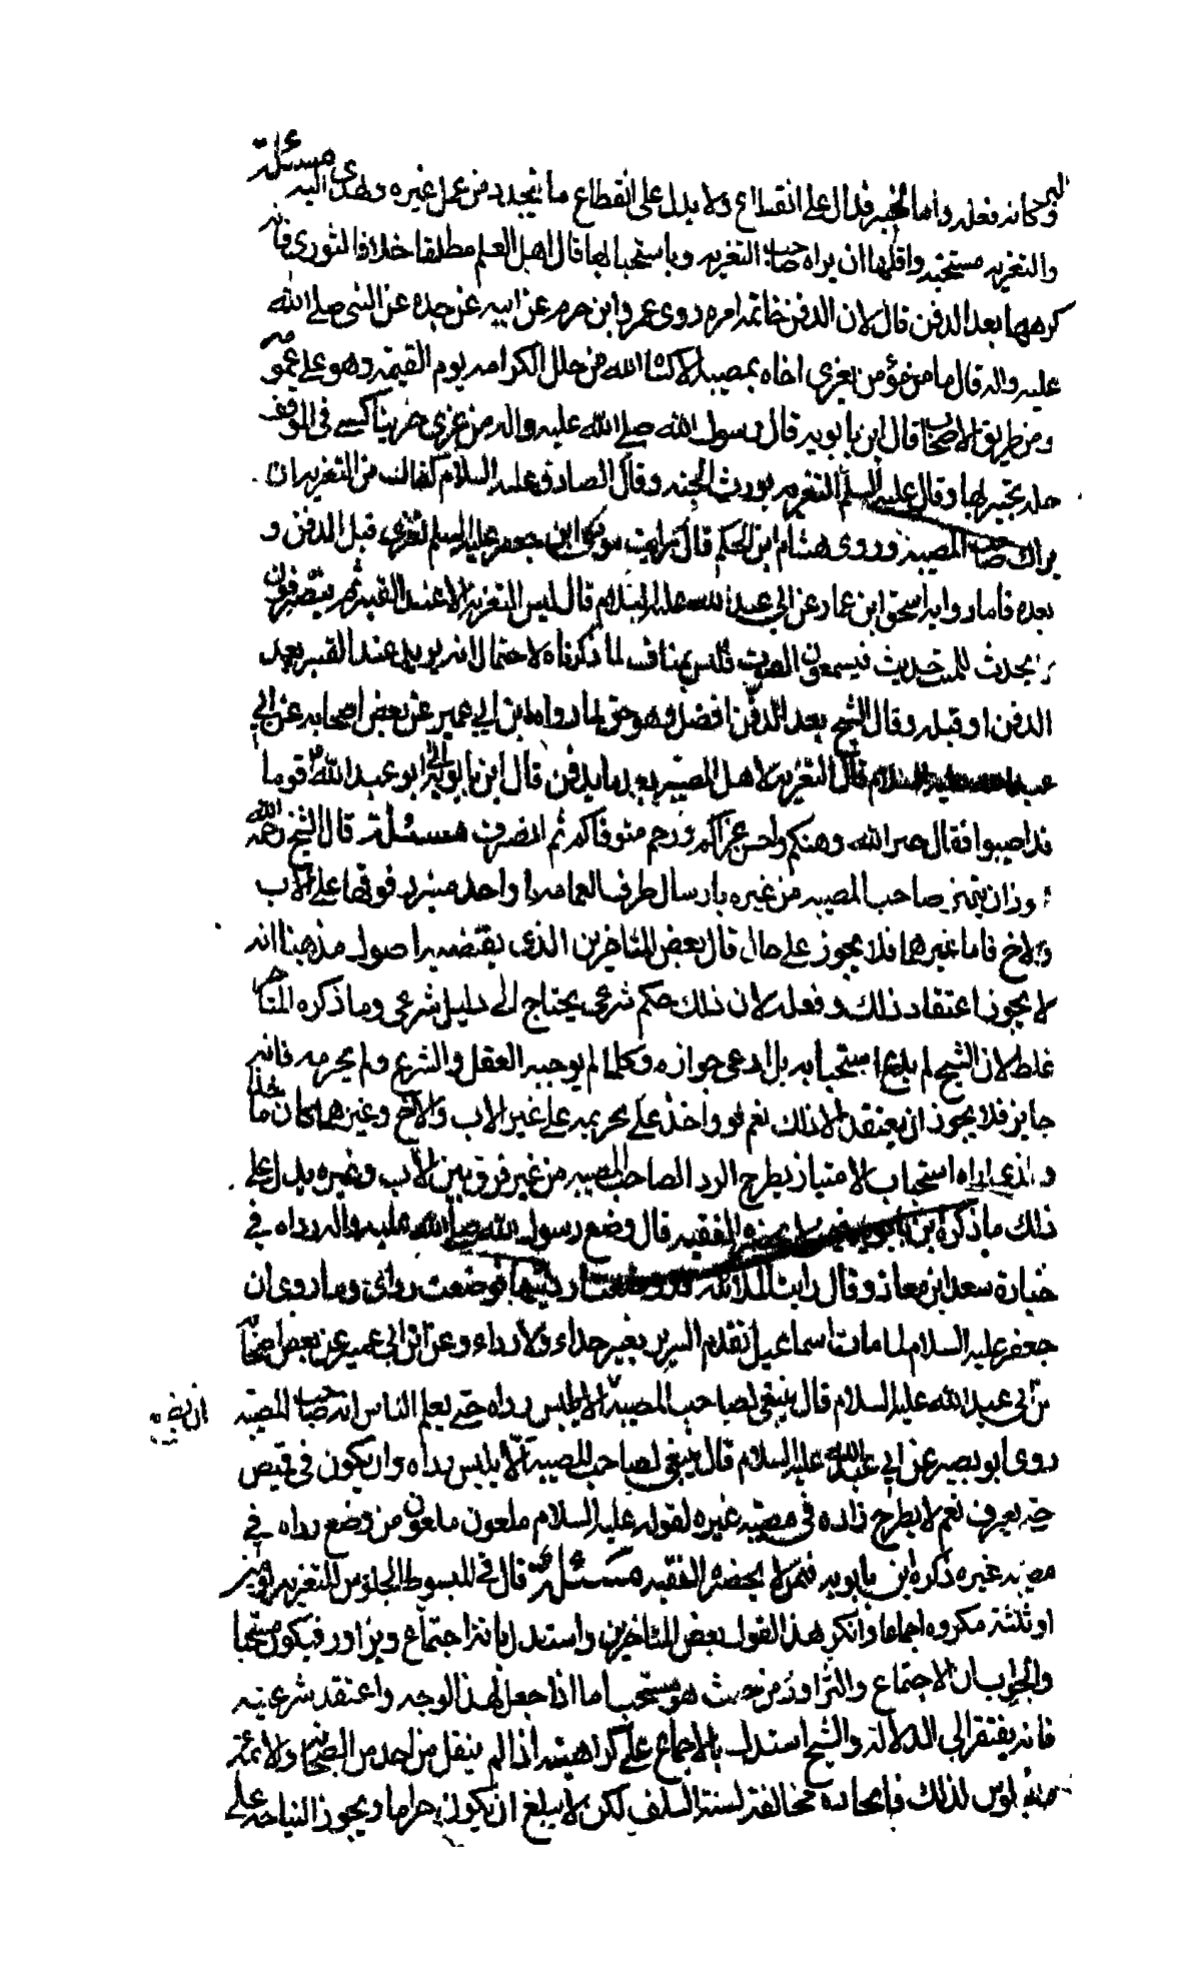 وكانه فعله واما الخبر فدال على انقطاع ولا يدل على انقطاع ما يتجدد من عمل غيره وهدى اليه مسئلة
والتعزيه مستحبه واقلها ان يراه صاحب التعزيه وباستحبابها قال اهل العلم مطلقا خلافا للثوري فانه
كرهها بعد الدفن قال لان الدفن خاتمه امره روى عمرو ابن حزم عن ابيه عن جده عن النبي صلى الله
عليه واله قال ما من مؤمن يعزي اخاه بمصيبه الا كساه الله من حلل الكرامه يوم القيمه وهو على عمومه
ومن طريق الاصحاب قال ابن بابويه قال رسول الله صلى الله عليه واله من عزى حزينا كسى في الموقف
حله يحبر بها وقال عليه السلم التعزيه تورث الجنه وقال الصادق عليه السلام كفاك من التعزيه ان
يراك صاحب المصيبه وروى هشام ابن الحكم قال رايت موسى ابن جعفر عليه السلم يعزي قبل الدفن و
بعده فاما رواية اسحق ابن عمار عن ابي عبد الله عليه السلام قال ليس التعزيه الا عند القبر ثم ينصرفون
لا يحدث للميت حديث فيسمعون الصوت فليس بمناف لما ذكرناه لاحتمال انه يريد عند القبر بعد
الدفن او قبله وقال الشيخ بعد الدفن افضل وهو حق لما رواه ابن ابي عمير عن بعض اصحابه عن ابي
عبد الله عليه السلام قال التعزيه لاهل المصيبه بعد ما يدفن قال ابن بابويه اتى ابو عبد الله قوما
قد اصيبوا فقال جبر الله وهنكم واحسن عزاكم ورحم متوفاكم ثم انصرف مسئلة قال الشيخ رحمه الله
وز ان يتميز صاحب المصيبه من غيره بارسال طرف العمامه او اخذ ميزر فوقها على الاب
والاخ فاما غيرهما فلا يجوز على حال قال بعض المتاخرين الذي يقتضيه اصول مذهبنا انه
لا يجوز اعتقاد ذلك وفعله لان ذلك حكم شرعى يحتاج الى دليل شرعى وما ذكره المتاخر
غلط لان الشيخ لم يدع استحبابه بل ادعى جوازه وكلما لم يوجبه العقل والشرع ولم يحرمه فانه
جايز فلا يجوز ان يعتقد الا ذلك نعم لو واخذ على تحريمه على غير الاب والاخ وغيرهما كان
والذي اراه استحباب الامتياز بطرح الردا لصاحب المصيبه من غير فرق بين الاب وغيره يدل على
ذلك ما ذكره ابن بابويه فيمن لا يحضره الفقيه قال وضع رسول الله صلى الله عليه واله رداه في
جنازة سعد ابن معاذ وقال رايت الملائكه قد وضعت ارديتها فوضعت ردائى وما روى ان
جعفر عليه السلام لما مات اسماعيل تقدم السرير بغير حذاء ولا رداء وعن ابن ابي عمير عن بعض اصحابه
عن ابي عبد الله عليه السلام قال ينبغي لصاحب المصيبه الا يلبس رداه حتى يعلم الناس انه صاحب المصيبه
روى ابو بصير عن ابي عبد الله عليه السلام قال ينبغي لصاحب المصيبه الا يلبس رداه وان يكون في قميص
حتى يعرف نعم لا يطرح رداه في مصيبه غيره لقوله عليه السلام ملعون ملعون من وضع رداه في
مصيبه غيره ذكره ابن بابويه فيمن لا يحضره الفقيه مسئلة قال في المبسوط الجلوس للتعزيه يومين
او ثلثة مكروه اجماعا وانكر هذا القول بعض المتاخرين واستدل بانه اجتماع وتزاور فيكون مستحبا
والجواب ان الاجتماع والتزاور من حيث هو مستحب اما اذا جعل لهذا الوجه واعتقد شرعيته
فانه يفتقر الى الدلالة والشيخ استدل بالاجماع على كراهيته اذ لم ينقل من احد من الصحابة ولا ائمة
الجلوس لذلك فاتخاذه مخالفة لسنة السلف لكن لا يبلغ ان يكون حراما ويجوز النياحه على